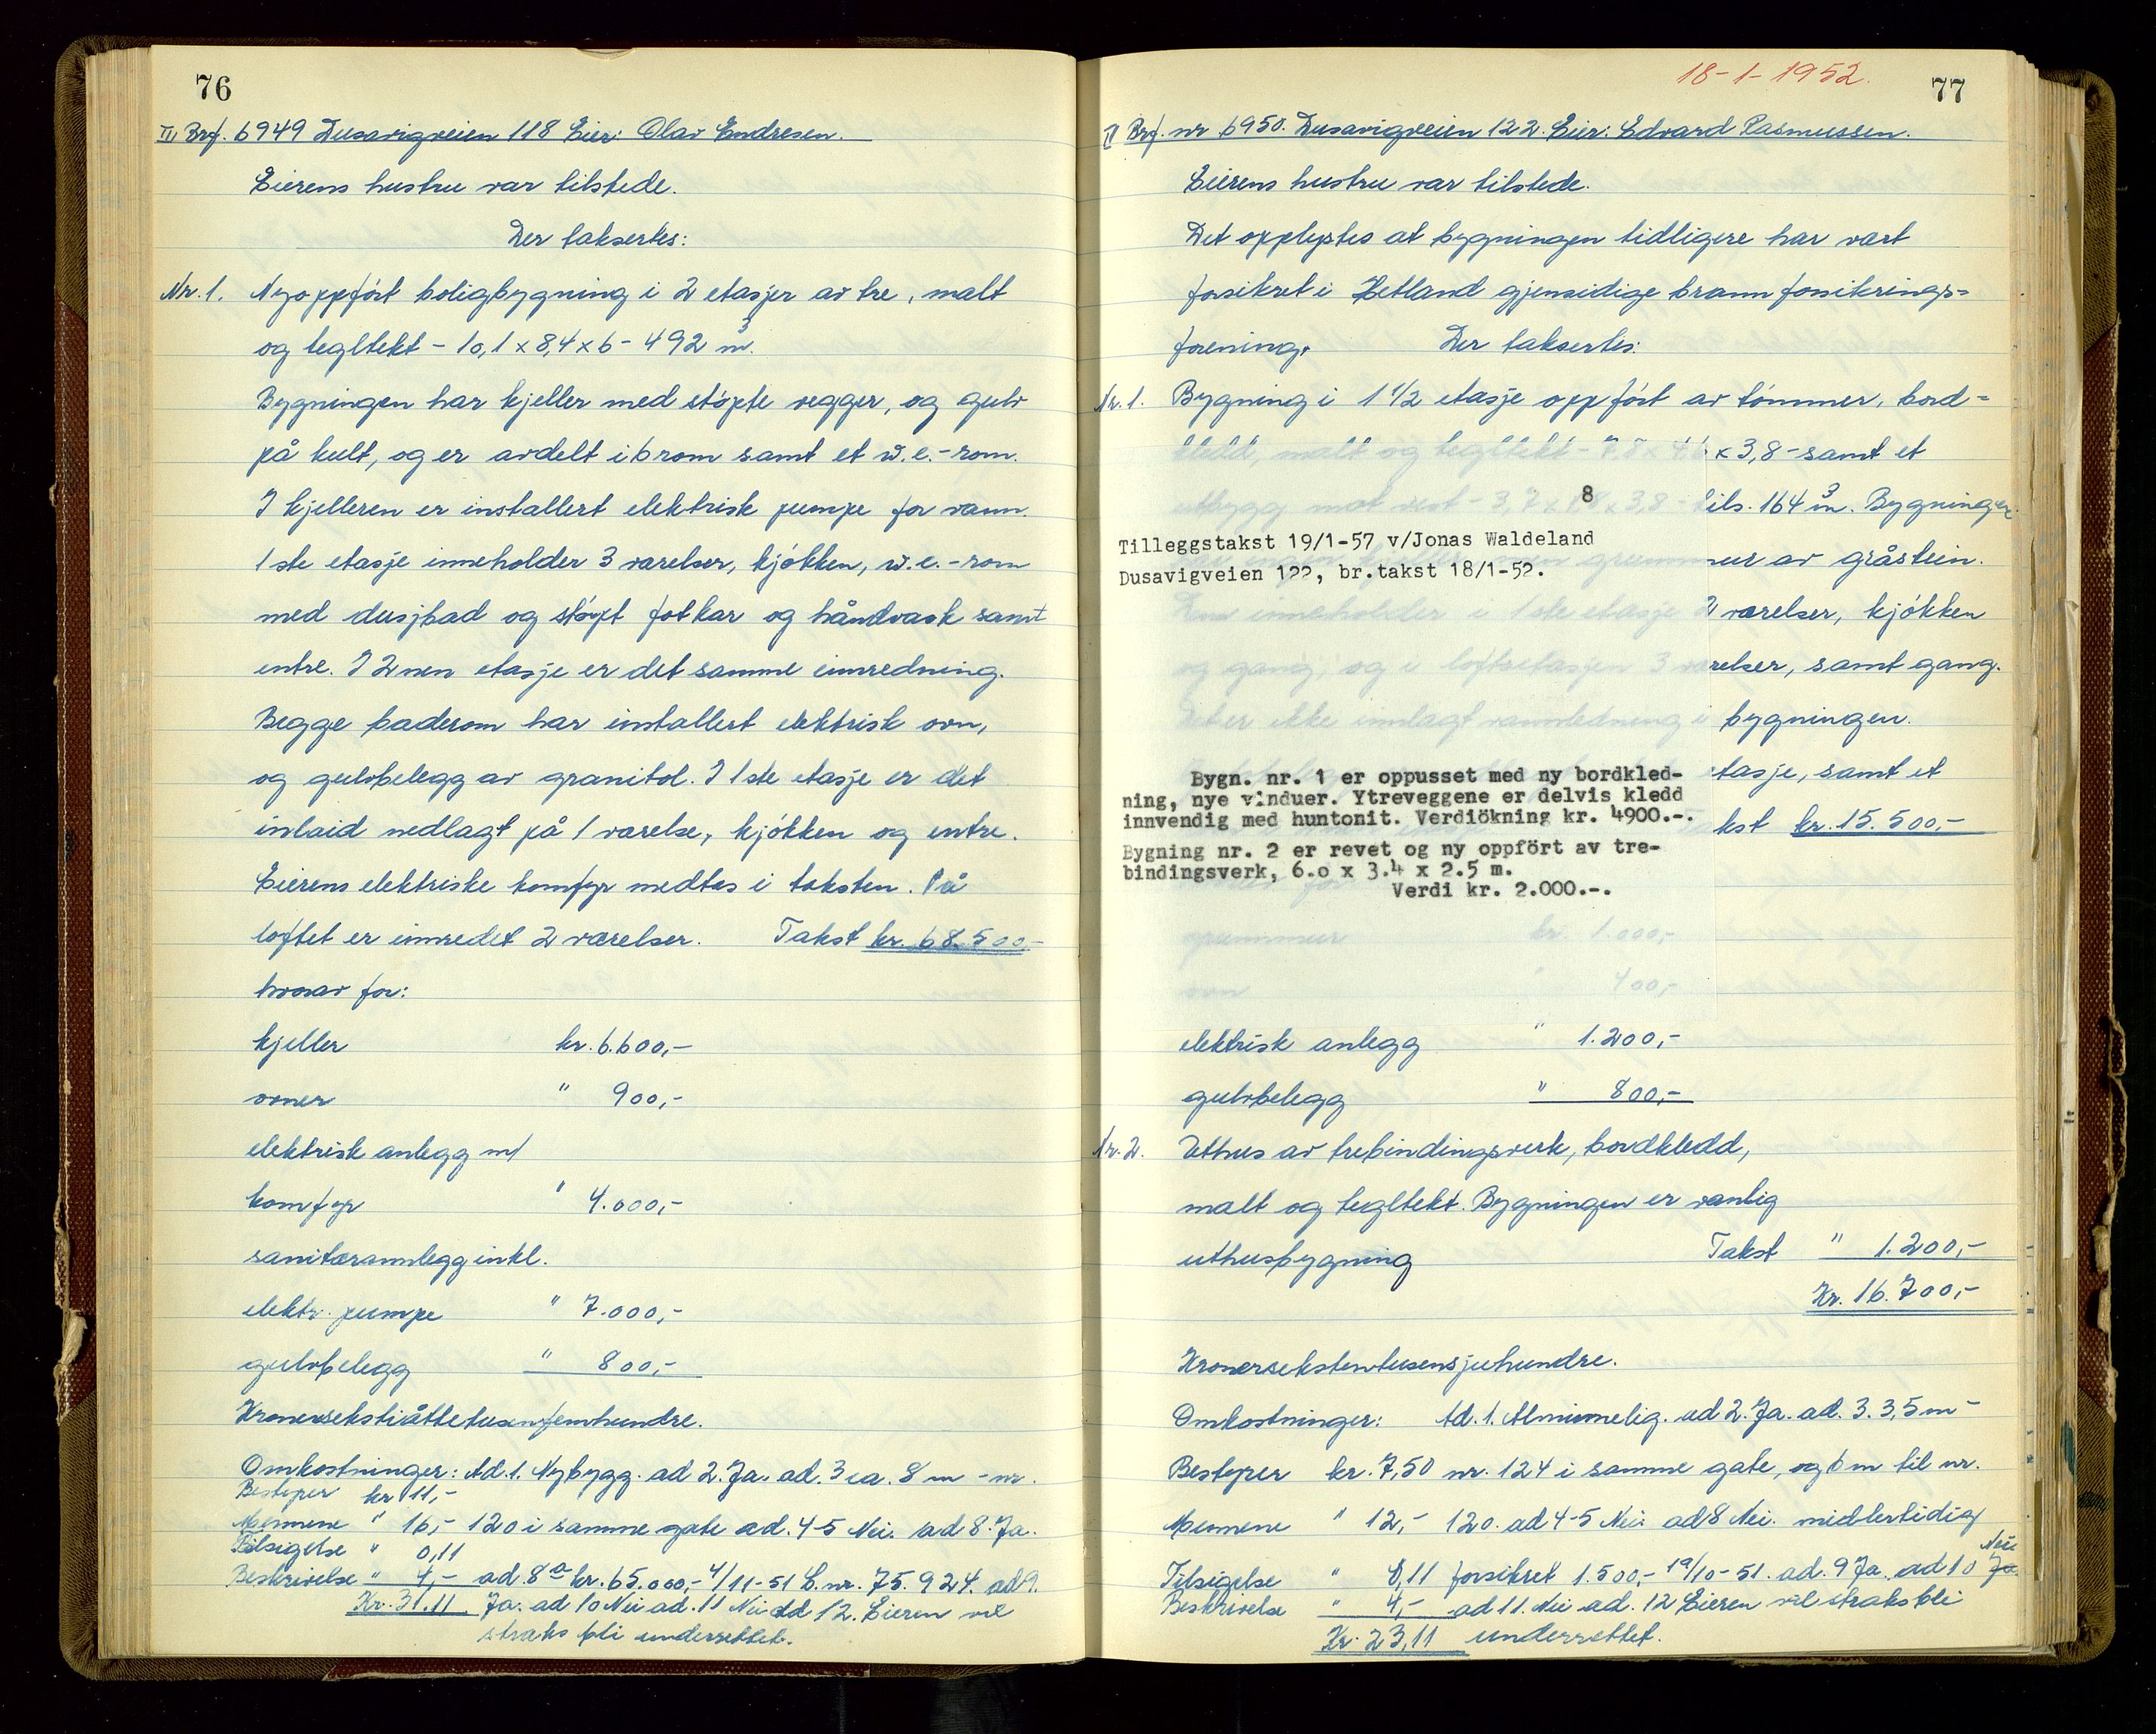 76
II Brf. 6949 Dusavigveien 118 Eier: Olav Endresen.
Eierens hustru var tilstede.
Der taksertes:
Nr. 1. Nyoppført boligbygning i 2 etasjer av tre, malt
og tegltekt - 10,1 x 8,4 x 6 - 492 m³.
Bygningen har kjeller med støpte vegger, og gulv
på kult, og er avdelt i 6 rom samt et w.c.-rom.
I kjelleren er installert elektrisk pumpe for vann.
1ste etasje inneholder 3 værelser, kjøkken, w.c.-rom
med dusjbad og støpt fotkar og håndvask samt
entre. I 2nen etasje er det samme innredning.
Begge baderom har installert elektrisk ovn,
og gulvbelegg av granitol. I 1ste etasje er det
inlaid nedlagt på 1 værelse, kjøkken og entre.
Eierens elektriske komfyr medtas i taksten. På
loftet er innredet 2 værelser. Takst kr. 68.500,-
hvorav for:
kjeller kr. 6.600,-
ovner " 900,-
elektrisk anlegg m/
komfyr " 4.000,-
sanitæranlegg inkl.
elektr. pumpe " 7.000,-
gulvbelegg " 800,-
Kronersekstiåttetusenfemhundre.
Omkostninger: Ad. 1. Nybygg. ad 2. Ja. ad. 3 ca. 8 m - nr.
Bestyrer kr 11,-
Mennene " 16,- 120 i samme gate ad. 4-5 Nei. ad 8. Ja.
Tilsigelse " 0,11
Beskrivelse " 4,- ad. 8a kr. 65.000,- 4/11-51 L.nr. 75.924. ad 9.
Kr. 31.11. Ja. ad 10 Nei ad. 11 Nei ad 12. Eieren vil
straks bli underrettet.
18-1-1952.
77
II Brf. nr 6950. Dusavigveien 122. Eier: Edvard Rasmussen.
Eierens hustru var tilstede.
Det opplystes at bygningen tidligere har vært
forsikret i Hetland gjensidige brannforsikrings=
forening. Der taksertes:
Nr. 1. Bygning i 1 1/2 etasje oppført av tømmer, bord=
kledd, malt og tegltekt - 7,8 x 4,6 x 3,8 - samt et
utbygg mot vest - 3,7 x 1,8 x 3,8 - tils. 164 m³. Bygningen
8
Tilleggstakst 19/1-57 v/Jonas Waldeland
grunnmur av gråstein.
Dusavigveien 122, br.takst 18/1-52.
Den inneholder i 1ste etasje 2 værelser, kjøkken
og gang, og i loftsetasjen 3 værelser, samt gang.
Det er ikke innlagt vannledning i bygningen.
etasje, samt et
Bygn. nr. 1 er oppusset med ny bordkled-
ning, nye vinduer. Ytreveggene er delvis kledd
innvendig med huntonit. Verdiökning kr. 4900.-.
kst kr. 15.500,-
Bygning nr. 2 er revet og ny oppfört av tre-
bindingsverk, 6.0 x 3.4 x 2.5 m.
Verdi kr. 2.000.-.
grunnmur kr. 1.000,-
ovn " 400,-
elektrisk anlegg " 1.200,-
gulvbelegg " 800,-
Nr. 2. Uthus av trebindingsverk, bordkledd,
malt og tegltekt. Bygningen er vanlig
uthusbygning Takst " 1.200,-
Kr. 16.700,-
Kronersekstentusensjuhundre.
Omkostninger: Ad. 1. Alminnelig. ad 2. Ja. ad. 3. 3,5 m -
Bestyrer kr. 7,50 nr. 124 i samme gate, og 6 m til nr.
Mennene " 12,- 120. ad 4-5 Nei. ad 8 Nei. midlertidig
Tilsigelse " 0,11 forsikret 1.500,- 19/10-51. ad. 9 Ja. ad 10 Ja. Nei
Beskrivelse " 4,- ad 11. Nei ad. 12 Eieren vil straks bli
Kr. 23,11 underrettet.